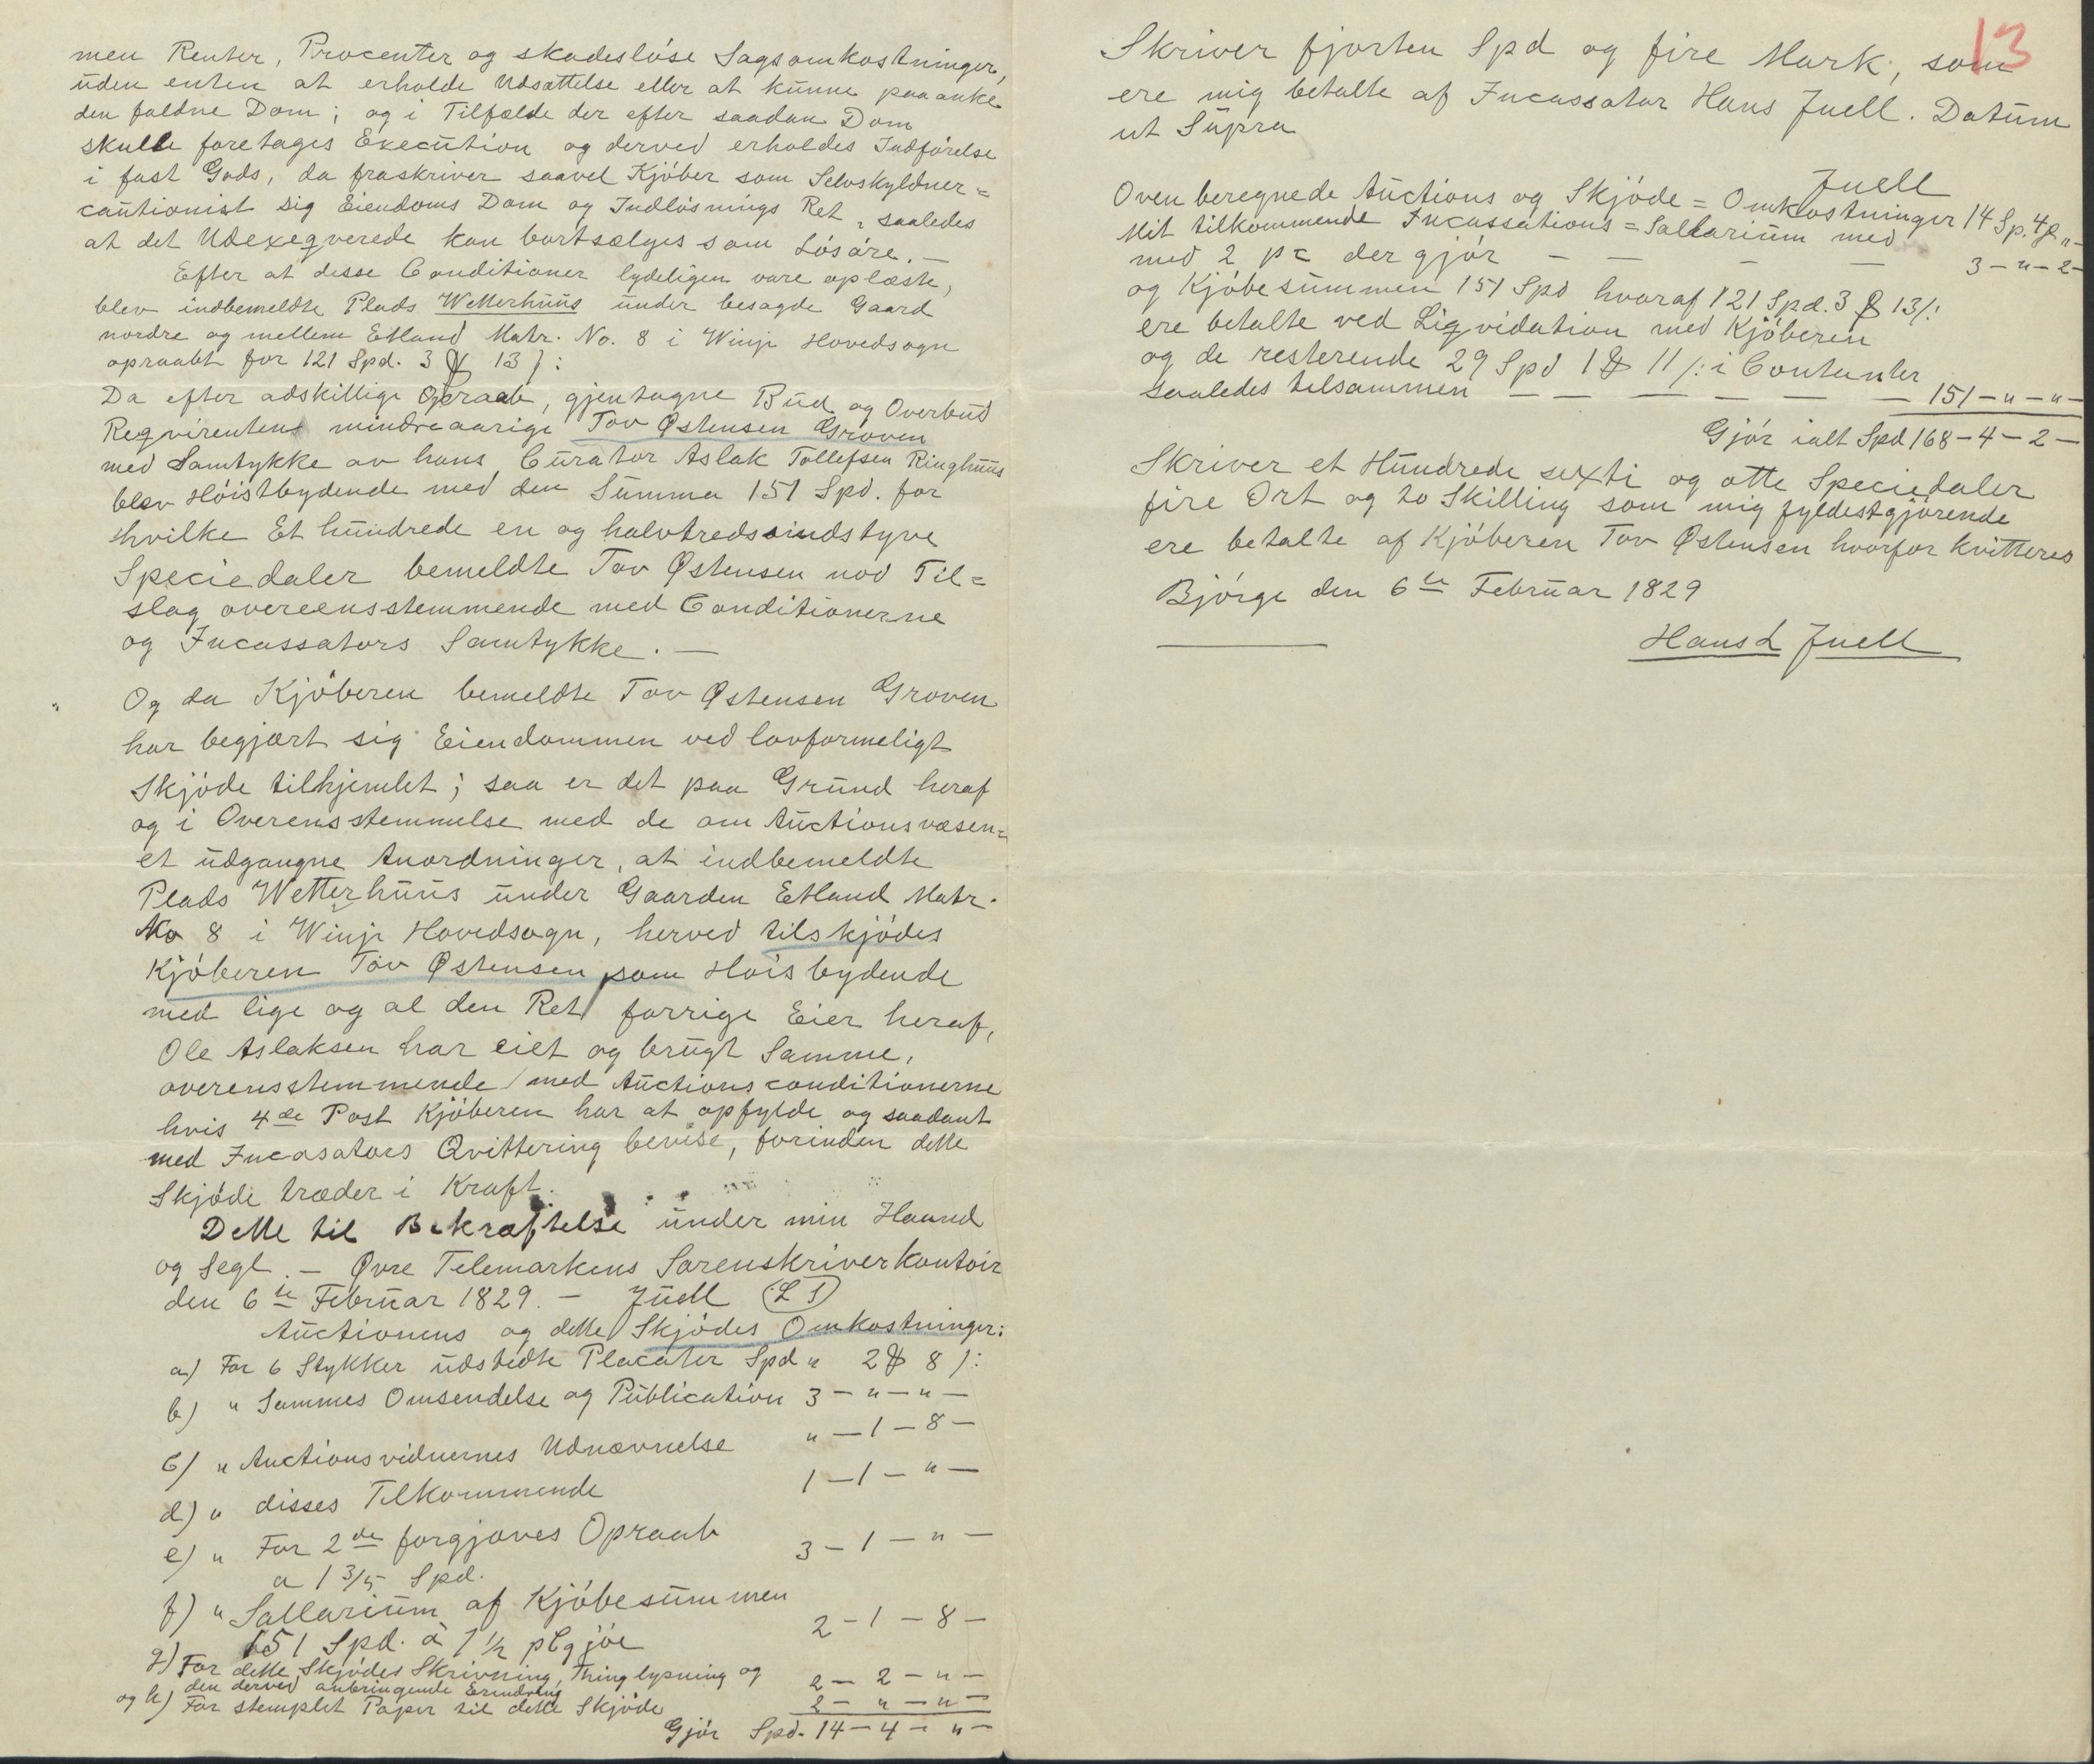 men Renter, Procenter og skadesløse Sagsomkostninger,
uden enten at erholde Udsættelse eller at kunne paaanke
den faldne Dom; og i Tilfælde der efter saadan Dom
skulle foretages Execution og derved erholdes Indførelse
i fast Gods, da fraskriver saavel Kjøber som Selvskyldner=
cautionist sig Eiendoms Dom og Indløsnings Ret, saaledes
at det Udexeqverede kan bortsælges som Løsøre. —
Efter at disse Conditioner lydeligen vare oplæste,
blev indbemeldte Plads Wetterhuus under besagde Gaard
nordre og mellem Etland Matr. No. 8 i Winje Hovedsogn
opraabt for 121 Spd. 3 ₰ 13 ):
Da efter adskillige Opraab, gjentagne Bud og Overbud
Reqvirentens mindreaarige Tov Østensen Groven
med Samtykke av hans Curator Aslak Tollefsen Ringhuus
blev Høistbydende med den Summa 151 Spd. for
hvilke Et hundrede en og halvtredsindstyve
Speciedaler bemeldte Tov Østensen nød Til=
slag overeensstemmende med Conditionerne
og Incassators Samtykke. —
Og da Kjøberen bemeldte Tov Østensen Groven
har begjært sig Eiendommen ved lovformeligt
Skjøde tilhjemlet; saa er det paa Grund heraf
og i Overensstemmelse med de om Auctionsvæsen=
et udgangne Anordninger, at indbemeldte
Plads Wetterhuus under Gaarden Etland Matr.
No 8 i Winje Hovedsogn, herved tilskjødes
Kjøberen Tov Østensen som Høisbydende
med lige og al den Ret forrige Eier heraf,
Ole Aslaksen har eiet og brugt Samme,
overensstemmende med Auctionsconditionerne
hvis 4de Post Kjøberen har at opfylde og saadant
med Incasators Qvittering bevise, forinden dette
Skjøde træder i Kraft.
Dette til Bekræftelse under min Haand
og Segl. — Øvre Telemarkens Sorenskriverkontoir
den 6te Februar 1829. — Juell (L S)
Auctionens og dette Skjødes Omkostninger:
a) For 6 Stykker udstedte Placater Spd " 2 ₰ 8 ):
b) " Sammes Omsendelse og Publication 3 — " — " —
c) " Auctionsvidnernes Udnævnelse " — 1 — 8 —
d) " disses Tilkommende 1 — 1 — " —
e) " For 2de forgjæves Opraab 3 — 1 — " —
a 1 3/5 Spd.
f) " Sallarium af Kjøbesummen
151 Spd. à 1 1/2 pC gjør 2 — 1 — 8 —
g) For dette Skjødes Skrivning, Thinglysning og
den derved anbringende Erindring 2 — 2 — " —
og h) For stemplet Papir til dette Skjøde 2 — " — " —
Gjør Spd. 14 — 4 — " —
13
Skriver fjorten Spd og fire Mark, som
ere mig betalte af Incassator Hans Juell. Datum
ut Supra
Juell
Oven beregnede Auctions og Skjøde = Omkostninger 14 Sp. 4 ₰ "
Mit tilkommende Incassations = Sallarium med
med 2 pc der gjør — — — — 3 — " — 2 —
og Kjøbesummen 151 Spd hvoraf 121 Spd. 3 ₰ 13 /:
ere betalte ved Liqvidation med Kjøberen
og de resterende 29 Spd 1 ₰ 11 /: i Contanter
saaledes tilsammen — — — — — 151 — " — " —
Gjør ialt Spd 168 — 4 — 2 —
Skriver et Hundrede sexti og otte Speciedaler
fire Ort og to Skilling som mig fyldestgjørende
ere betalte af Kjøberen Tov Østensen hvorfor kvitteres
Bjørge den 6te Februar 1829
Hans L Juell